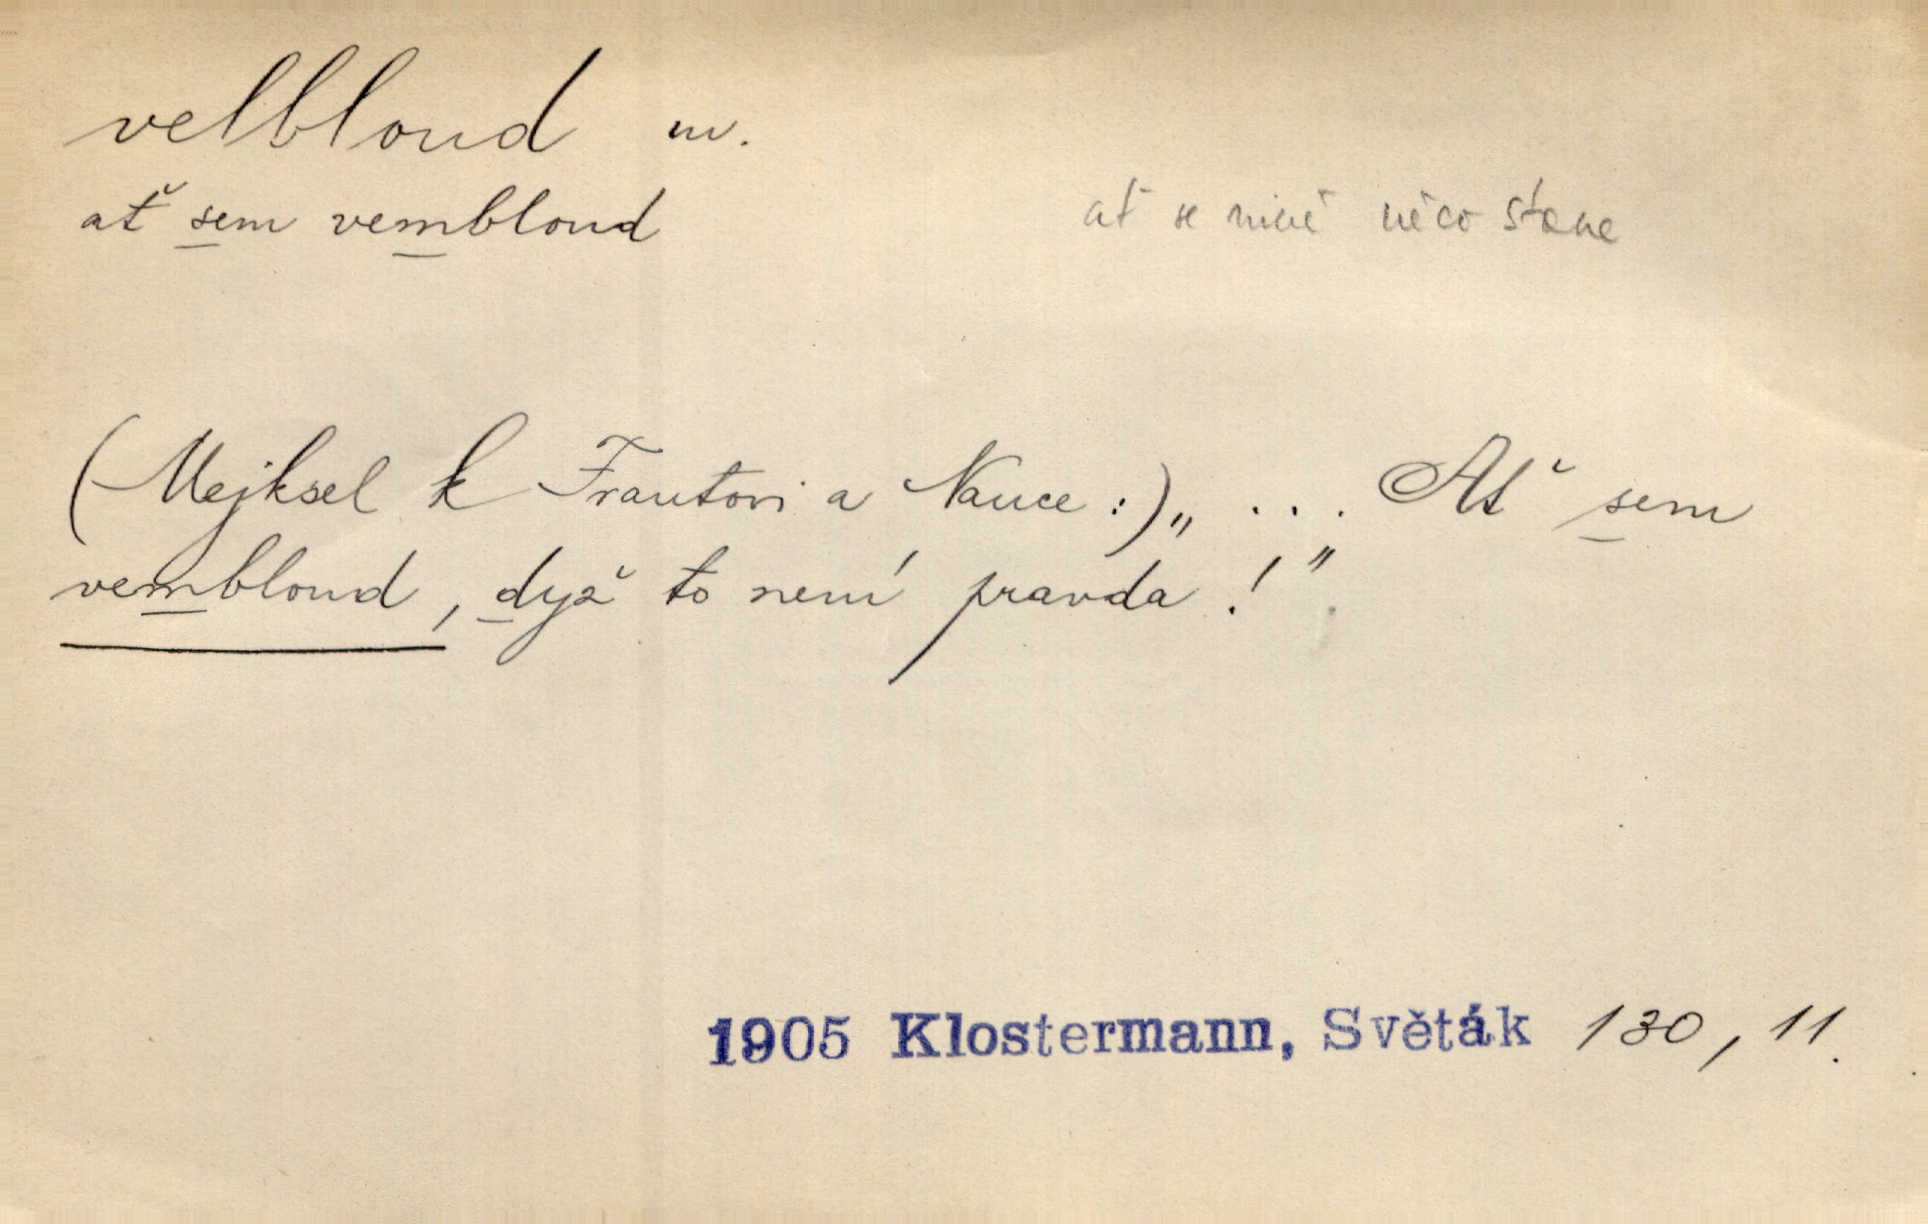 velbloud m.
ať sem vembloud
ať se mně něco stane
(Mejksel k Frantovi a Nance:) „ ... Ať sem
vembloud, dyž to není pravda!"
1905 Klostermann, Světák 130, 11.